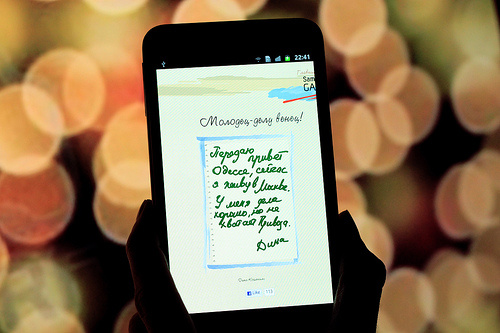 22:41
Sam
GA
Молодец-делу венец!
Передаю привет
Одессе, сейчас
я живу в Москве.
У меня дела
хорошо, но не
хватает Привоза.
Дина
Like 115